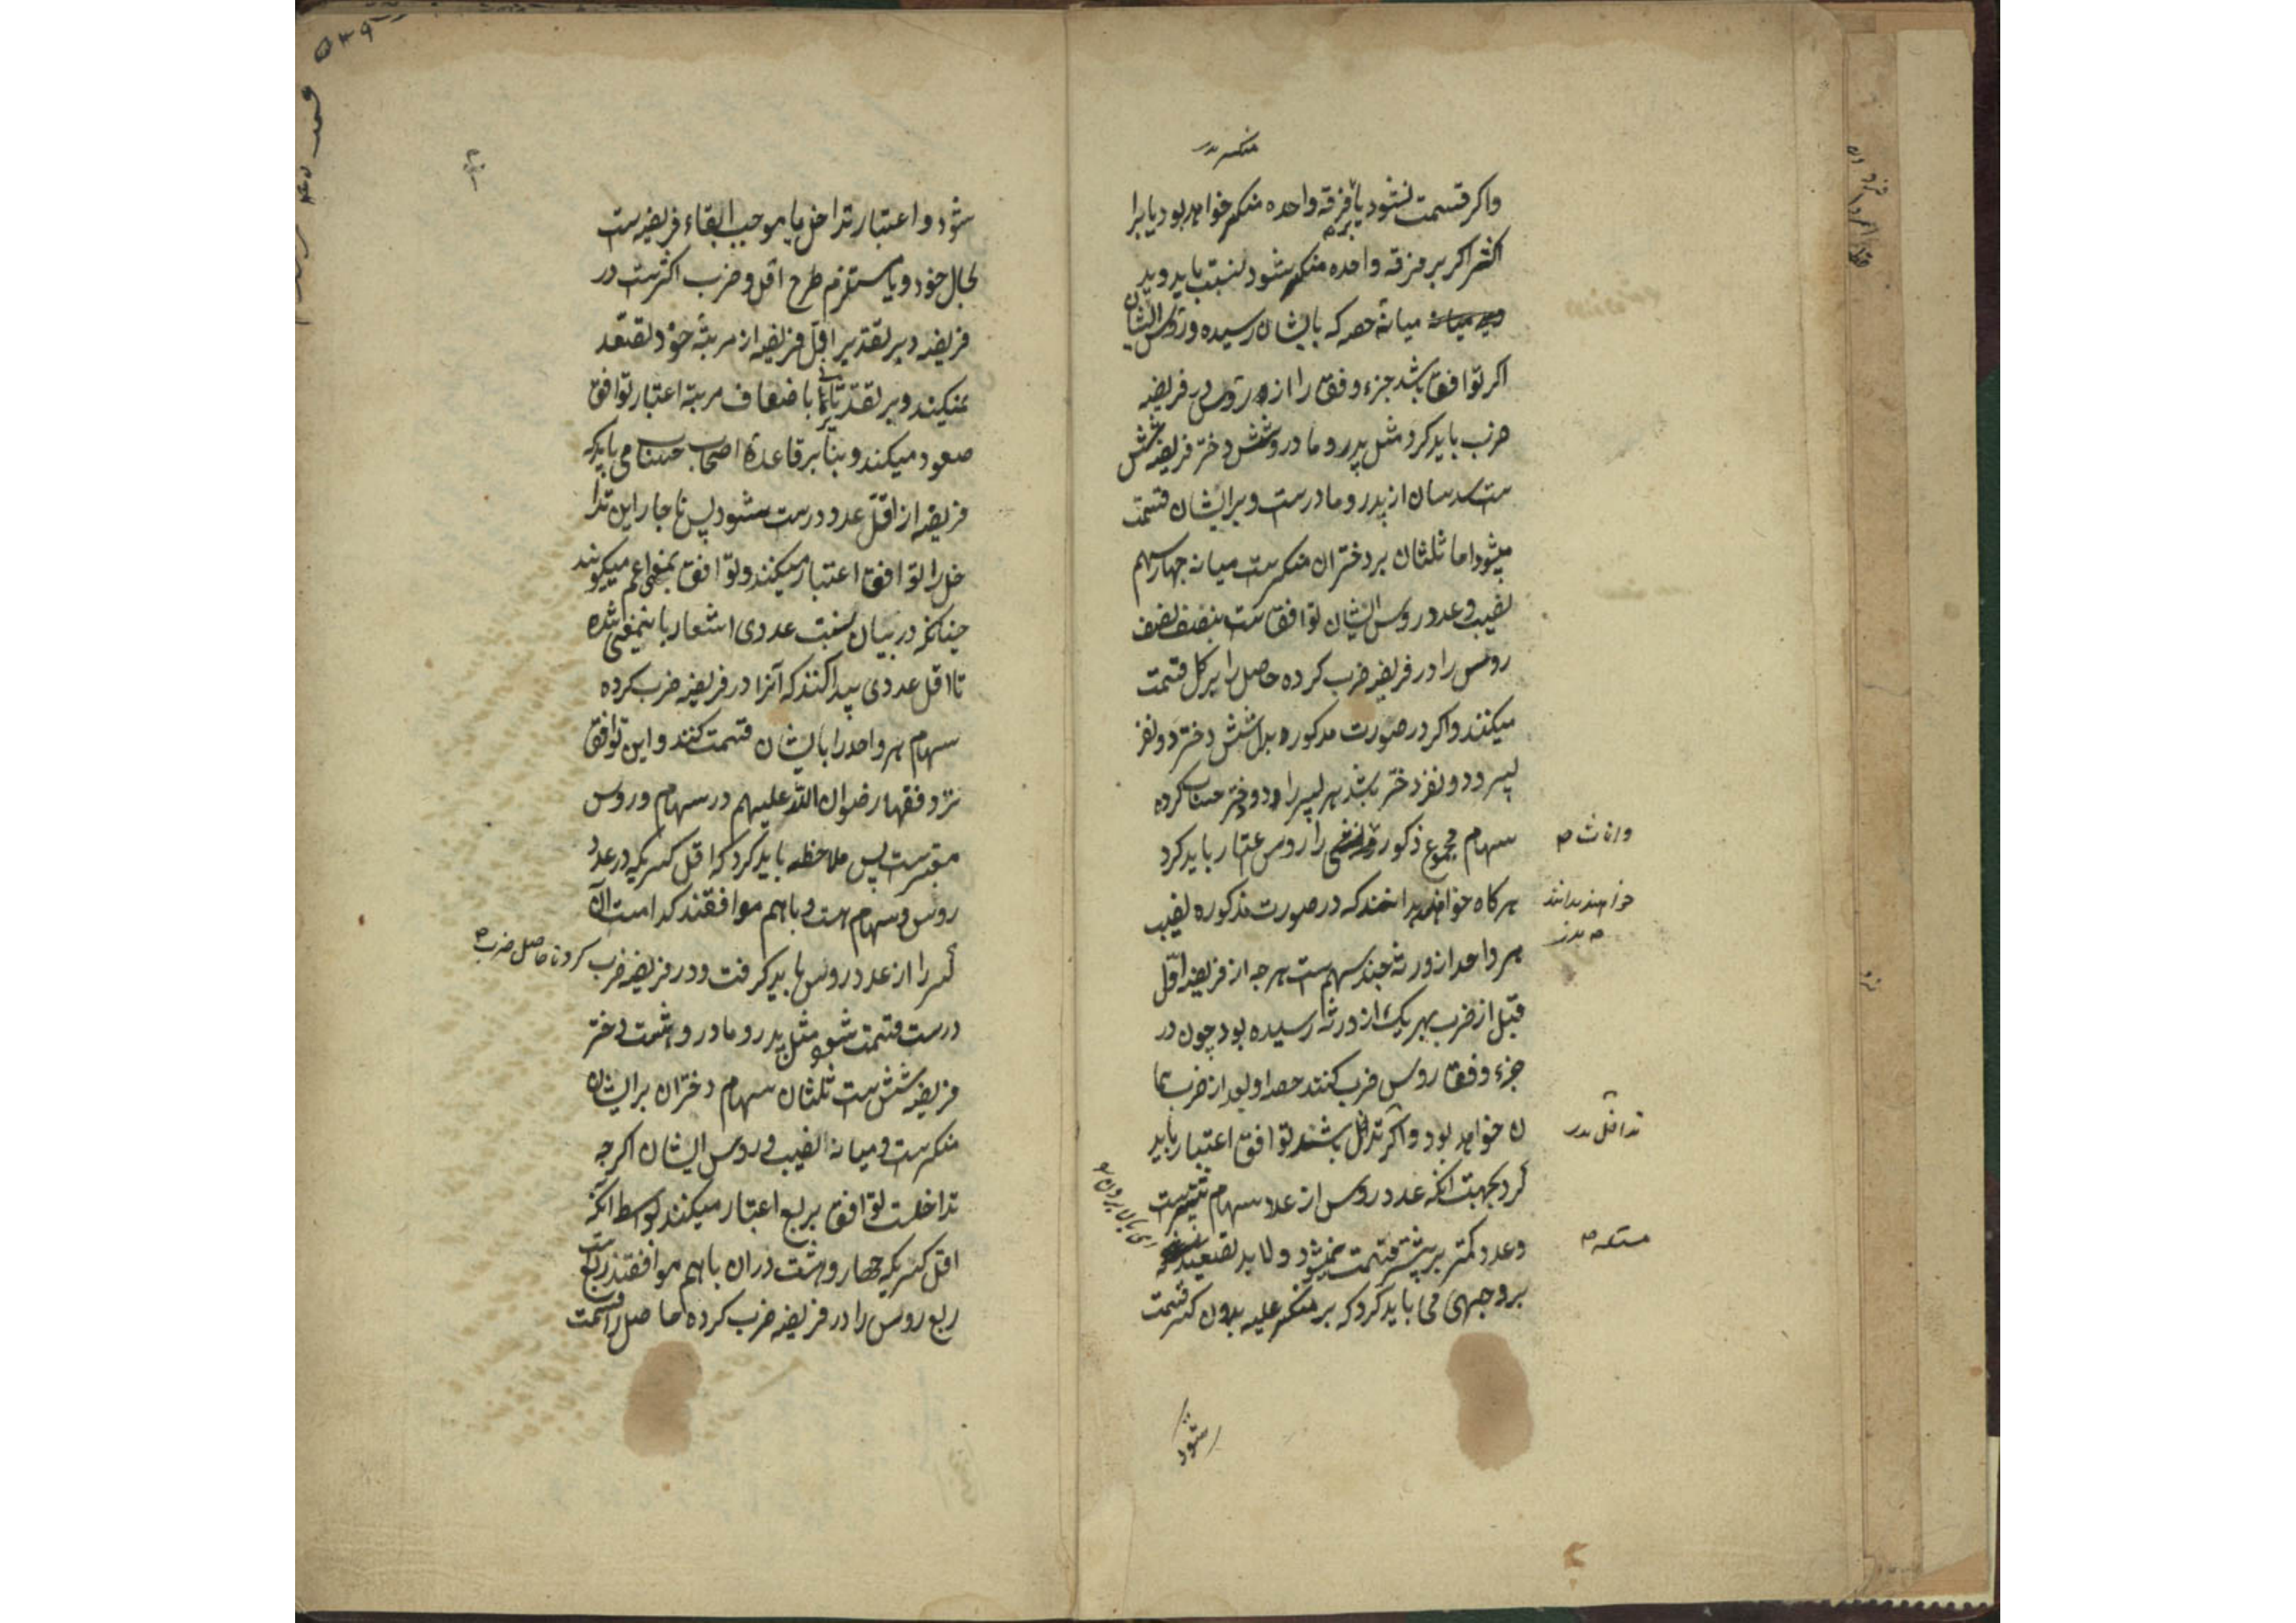 منکسر
واکر قسمت نشود یا بر فرقه واحده منکسر خواهد بود یا برا
اکثر اکر بر فرقه واحده منکسر شود نسبت باید دید
میانه حصه که بایشان رسیده و رؤس ایشان
اکر توافق باشد جزء وفق را از رؤس در فریضه
ضرب باید کرد مثل پدر و مادر و شش دختر فریضه شش
ست سدسان از پدر و مادرست و بر ایشان قسمت
میشود اما ثلثان بر دختران منکسرست میانه چهار سهم
نصیب و عدد روس ایشان توافق ست بنصف نصف
روس را در فریضه ضرب کرده حاصل را بر کل قسمت
میکنند و اکر در صورت مذکوره بدل شش دختر دو نفر
پسر و دو نفر دختر باشد هر پسر را دو دختر حساب کرده
سهام مجموع ذکور را روس اعتبار باید کرد
واناث
هرکاه خواهند بدانند که در صورت مذکوره نصیب
خواهند بدانند
هر واحد از ورثه چند سهم ست هر چه از فریضه اول
قبل از ضرب بهر یک از ورثه رسیده بود چون در
جزء وفق روس ضرب کنند حصه او بعد از ضرب هما
ن خواهد بود و اکر تداخل باشند توافق اعتبار باید
تداخل
کرد بجهت آنکه عدد روس از عدد سهام بیشترست
و عدد کمتر بر بیشتر قسمت نمیشود و لابد
بر وجهی می باید کرد که بر منکسر علیه بدون کسر قسمت
شود
شود و اعتبار تداخل یا موجب ابقاء فریضه ست
بحال خود و یا مستلزم طرح اقل و ضرب اکثرست در
فریضه و بر تقدیر اول فریضه از مرتبه خود تصعد
نمیکند و بر تقدیر ثانی باضعاف مرتبه اعتبار توافق
صعود میکند و بنا بر قاعدهٔ اصحاب حساب می باید که
فریضه از اقل عدد درست شود پس ناچار این تدا
خل را توافق اعتبار میکنند و توافق بمعنی اعم میکویند
چنانکه در بیان نسبت عددی اشعار باینمعنی شده
تا اقل عددی پیدا کنند که آنرا در فریضه ضرب کرده
سهام هر واحد را بایشان قسمت کنند و این توافق
نزد فقها رضوان الله علیهم در سهام و روس
معتبرست پس ملاحظه باید کرد که اقل کسریکه در عدد
روس و سهام هست و باهم موافقند کدامست آن
کسر را از عدد روس باید کرفت و در فریضه ضرب کرد تا حاصل ضرب
درست قسمت شود مثل پدر و مادر و هشت دختر
فریضه شش ست ثلثان سهام دختران بر ایشان
منکسرست و میانه نصیب و روس ایشان اکرچه
تداخلست توافق بربع اعتبار میکنند بواسطه آنکه
اقل کسریکه چهار و هشت در آن باهم موافقند ربع ست
ربع روس را در فریضه ضرب کرده حاصل را قسمت